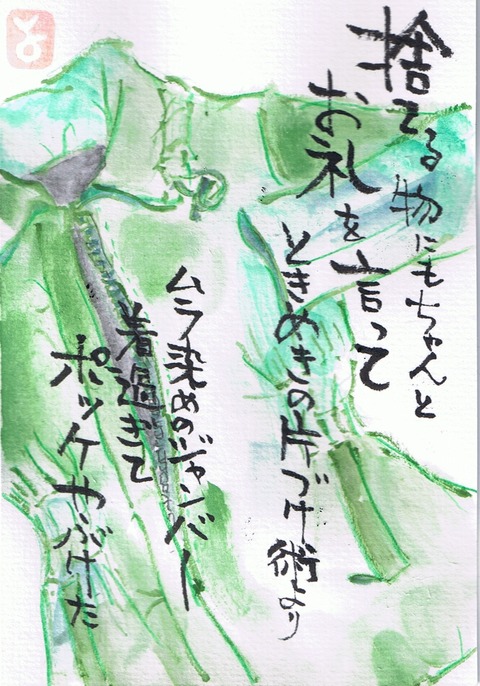 捨てる物にもちゃんと
お礼を言って
ときめきの片づけ術より
ムラ染めのジャンバー
着過ぎて
ポッケやぶけた